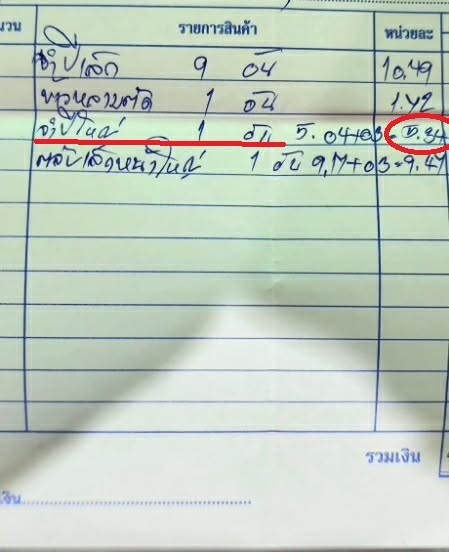 นวน รายการสินค้า หน่วยละ
จำปีเล็ก 9 อัน 10.49
1 อัน 1.42
จำปีใหญ่ 1 อัน 5.04+03=5.34
ตลับเล็กหน้าใหญ่ 1 อัน 9.17+03=9.47
รวมเงิน
เงิน